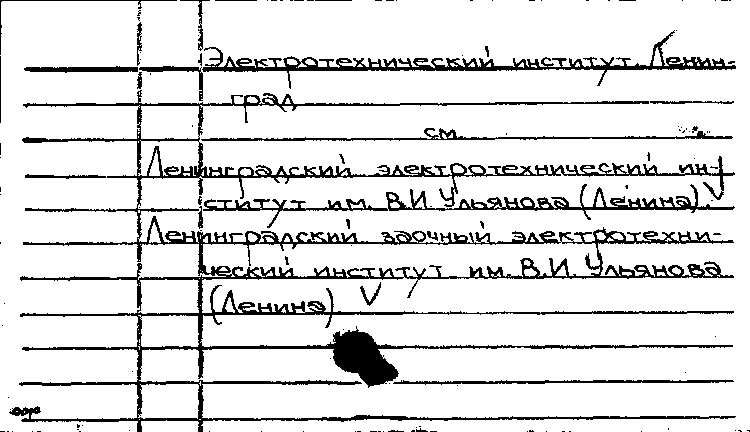 Электротехнический институт. Ленин-
град
см.
Ленинградский электротехнический ин-
ститут им. В.И. Ульянова (Ленина).
Ленинградский заочный электротехни-
ческий институт им. В.И. Ульянова
(Ленина)